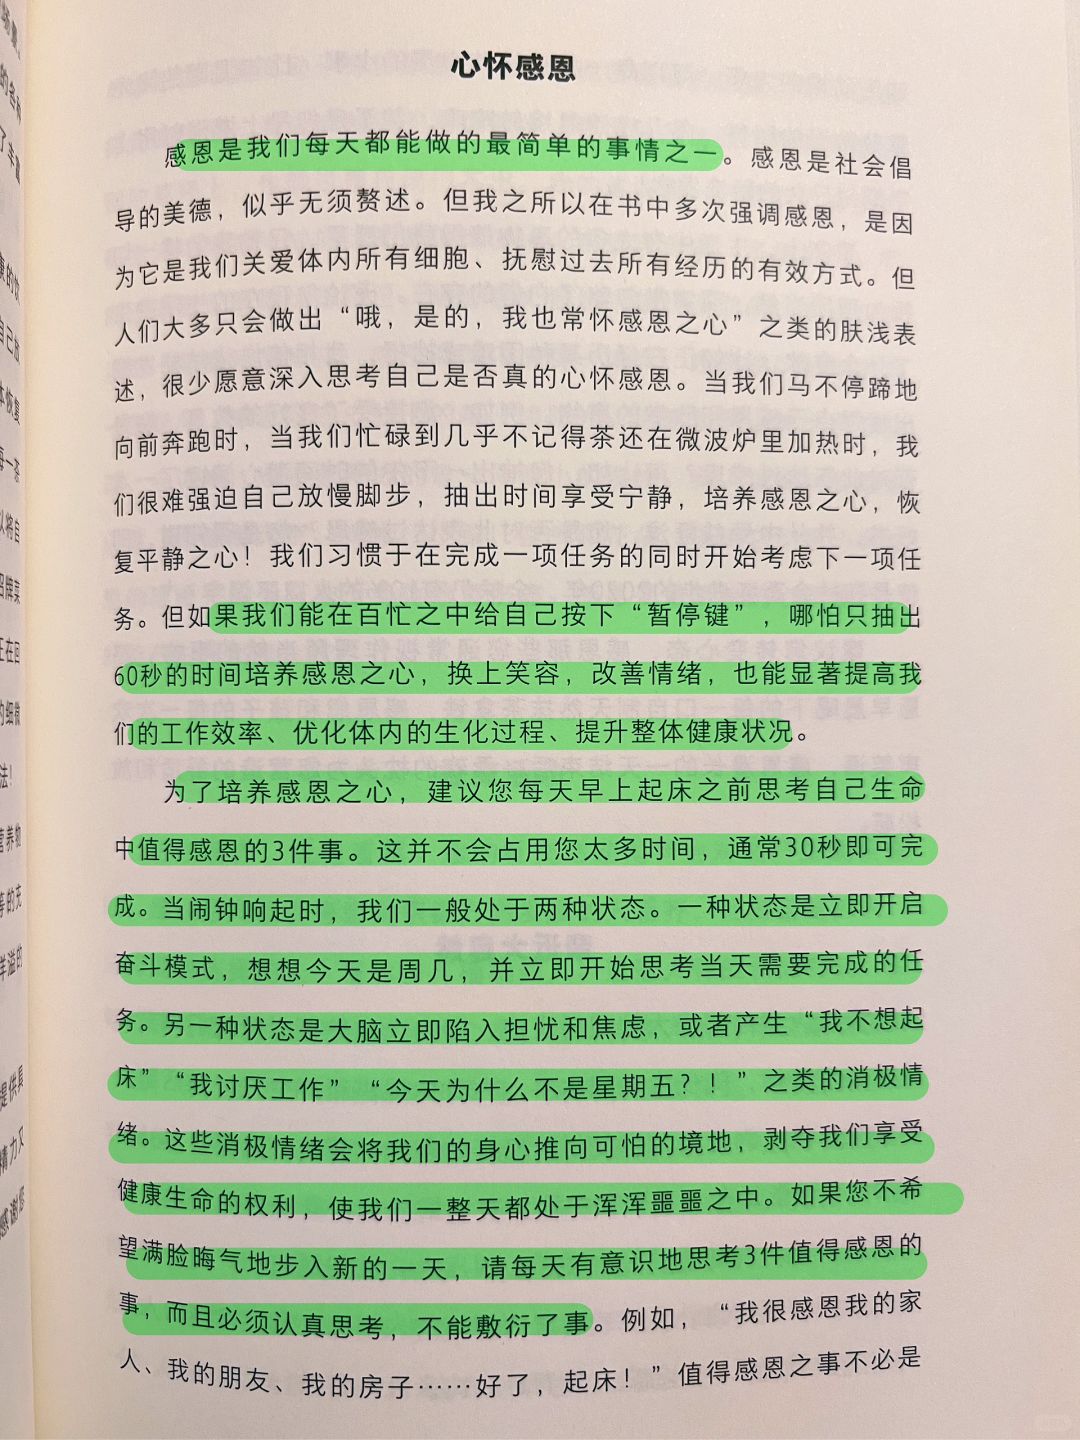 心怀感恩
感恩是我们每天都能做的最简单的事情之一。感恩是社会倡
导的美德，似乎无须赘述。但我之所以在书中多次强调感恩，是因
为它是我们关爱体内所有细胞、抚慰过去所有经历的有效方式。但
人们大多只会做出“哦，是的，我也常怀感恩之心”之类的肤浅表
述，很少愿意深入思考自己是否真的心怀感恩。当我们马不停蹄地
向前奔跑时，当我们忙碌到几乎不记得茶还在微波炉里加热时，我
们很难强迫自己放慢脚步，抽出时间享受宁静，培养感恩之心，恢
复平静之心！我们习惯于在完成一项任务的同时开始考虑下一项任
务。但如果我们能在百忙之中给自己按下“暂停键”，哪怕只抽出
60秒的时间培养感恩之心，换上笑容，改善情绪，也能显著提高我
们的工作效率、优化体内的生化过程、提升整体健康状况。
为了培养感恩之心，建议您每天早上起床之前思考自己生命
中值得感恩的3件事。这并不会占用您太多时间，通常30秒即可完
成。当闹钟响起时，我们一般处于两种状态。一种状态是立即开启
奋斗模式，想想今天是周几，并立即开始思考当天需要完成的任
务。另一种状态是大脑立即陷入担忧和焦虑，或者产生“我不想起
床”“我讨厌工作”“今天为什么不是星期五？！”之类的消极情
绪。这些消极情绪会将我们的身心推向可怕的境地，剥夺我们享受
健康生命的权利，使我们一整天都处于浑浑噩噩之中。如果您不希
望满脸晦气地步入新的一天，请每天有意识地思考3件值得感恩的
事，而且必须认真思考，不能敷衍了事。例如，“我很感恩我的家
人、我的朋友、我的房子……好了，起床！”值得感恩之事不必是